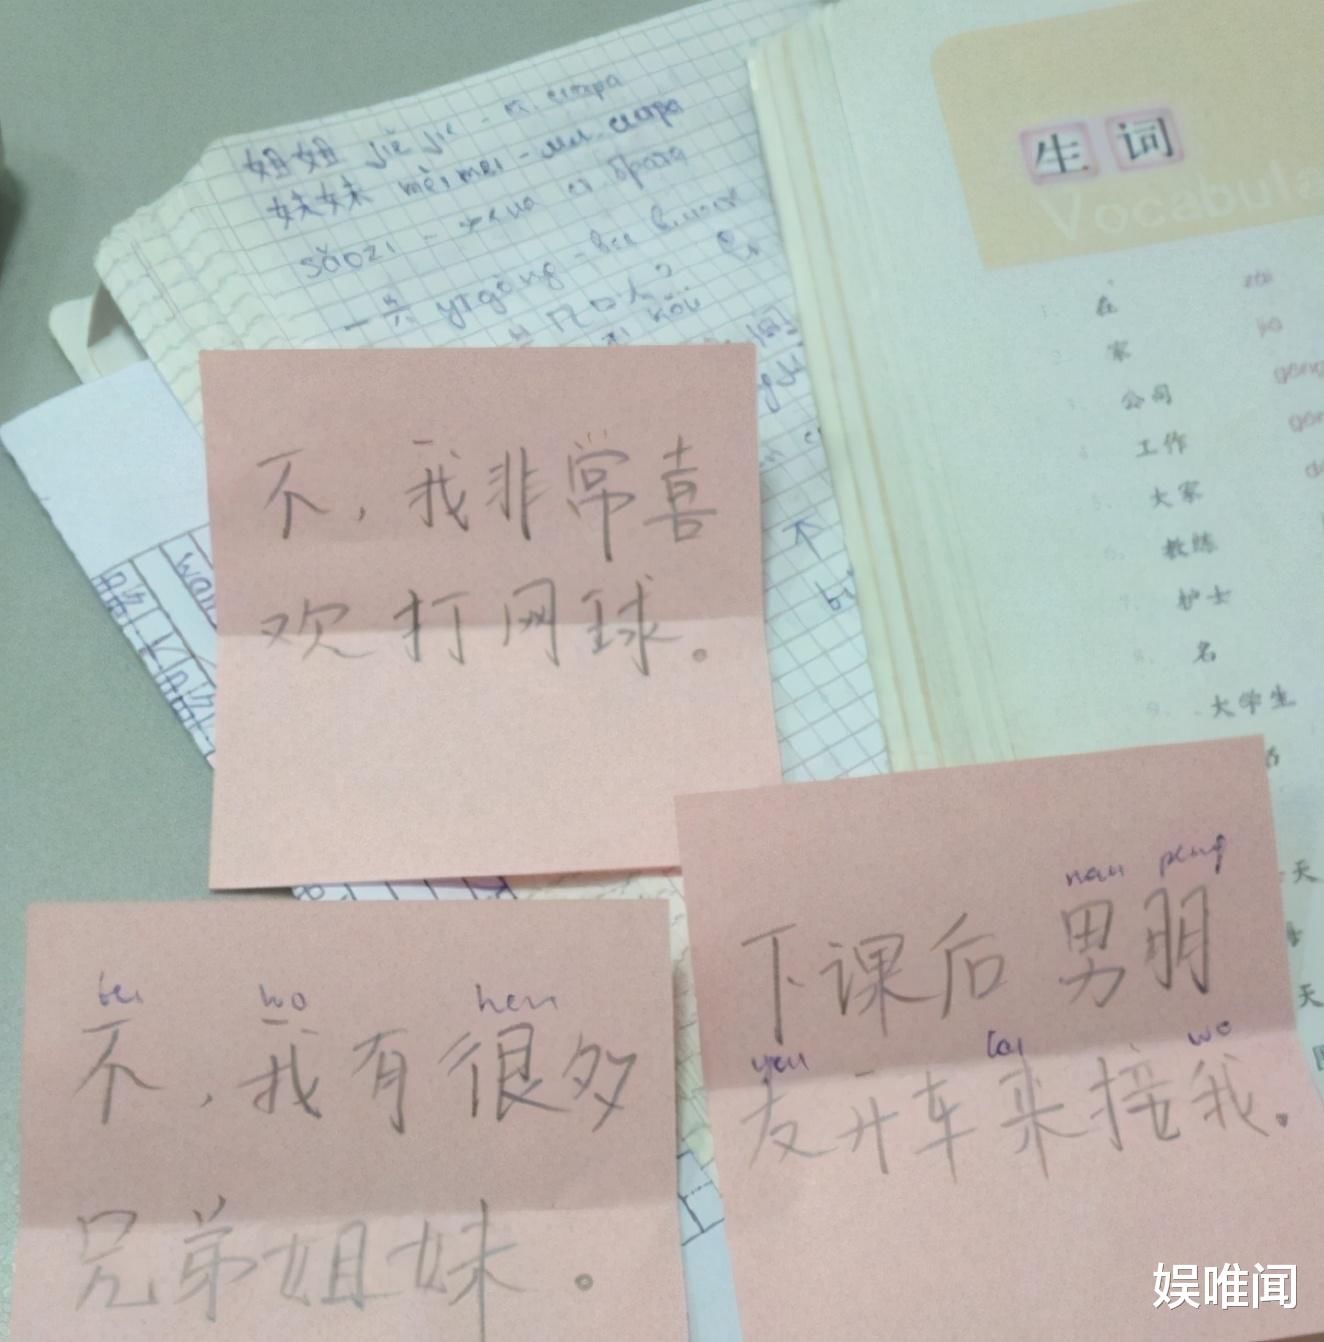 姐姐 jiě jie - ст. сестра
妹妹 mèi mei - мл. сестра
sǎozi - жена ст. брата
一共 yīgòng - все вместе
几口人?
kǒu
不，我非常喜
欢打网球。
生词
Vocabula
在
家 jiā
公司 gōng
工作 gōng
大家
教练
护士
名
大学生
bu wo hen
不，我有很多
兄弟姐妹。
nan peng
下课后男朋
you lai wo
友开车来接我。
娱唯闻